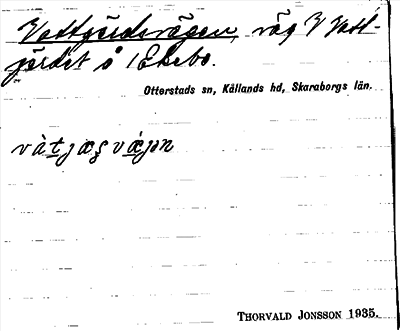 Vattgärdsvägen, väg t Vatt-
gärdet å Ekebo.
Otterstads sn, Kållands hd, Skaraborgs län.
vàtjæʂvǽjən
THORVALD JONSSON 1935.